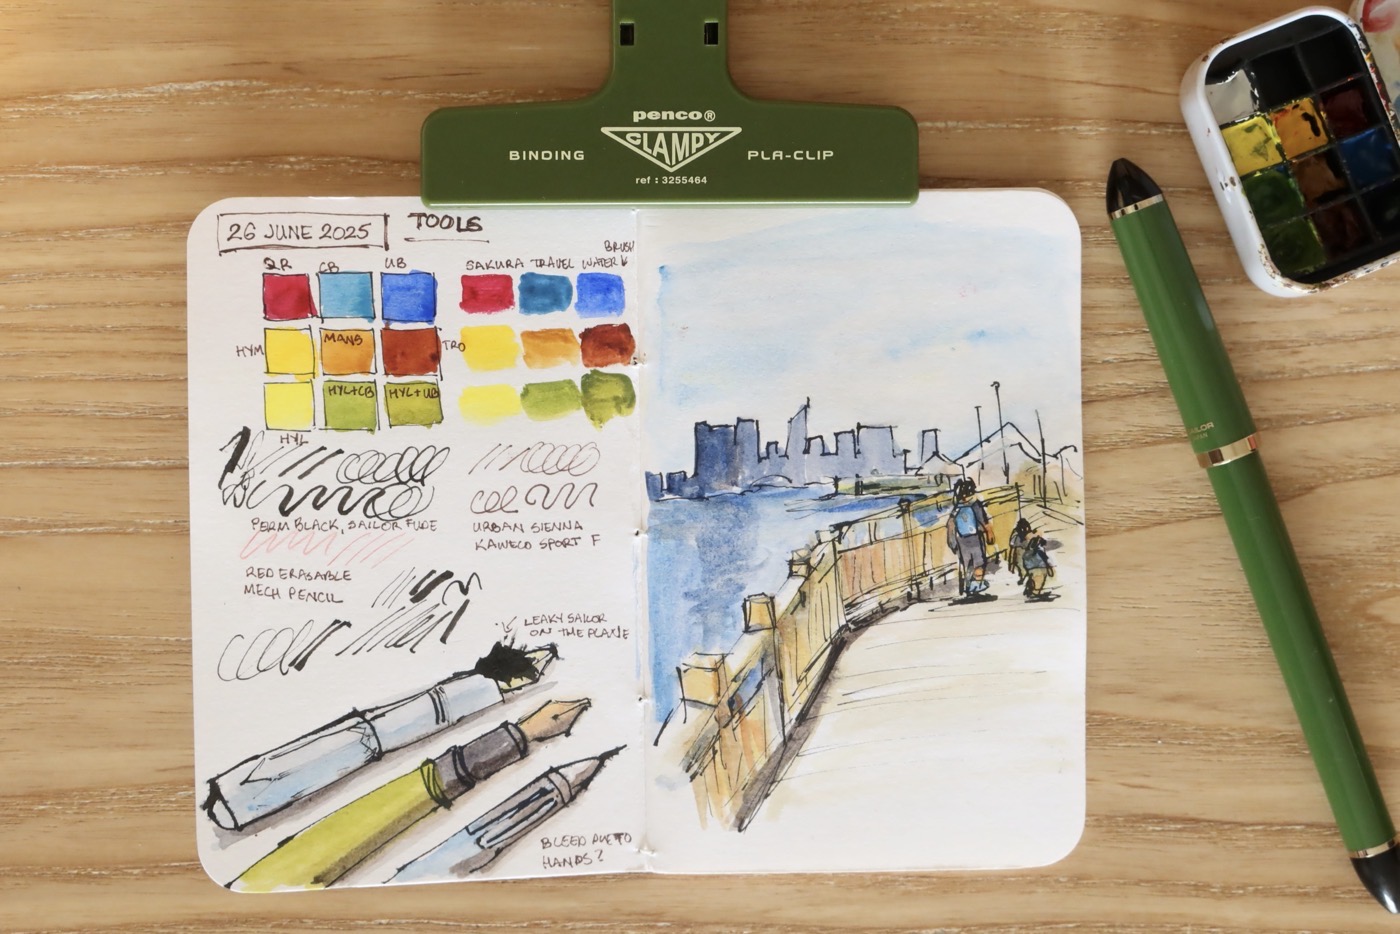 penco®
CLAMPY
BINDING PLA-CLIP
ref : 3255464
26 JUNE 2025 TOOLS
BRUSH
QR CB UB SAKURA TRAVEL WATER
HYM MANS TRO
HYL+CB HYL+UB
HYL
PERM BLACK, SAILOR FUDE
URBAN SIENNA
KAWECO SPORT F
RED ERASABLE
MECH PENCIL
LEAKY SAILOR
ON THE PLANE
BLEED DUE TO
HANDS?
SAILOR